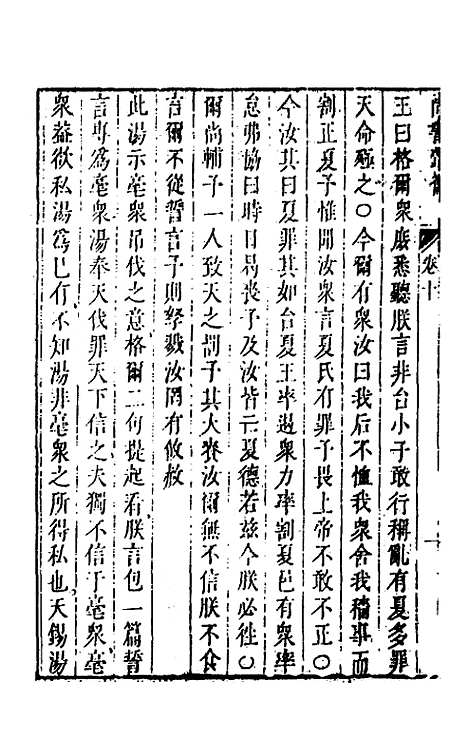 卷十
王曰格爾衆庶悉聽朕言非台小子敢行稱亂有夏多罪
天命殛之〇今爾有衆汝曰我后不恤我衆舍我穡事而
割正夏予惟聞汝衆言夏氏有罪予畏上帝不敢不正〇
今汝其曰夏罪其如台夏王率遏衆力率割夏邑有衆率
怠弗協曰時日曷喪予及汝皆亡夏德若兹今朕必徃〇
爾尚輔予一人致天之罰予其大賚汝爾無不信朕不食
言爾不從誓言予則孥戮汝罔有攸赦
此湯示亳衆吊伐之意格爾二句提起看朕言包一篇誓
言專爲亳衆湯奉天伐罪天下信之夫獨不信于亳衆亳
衆葢欲私湯爲巳有不知湯非亳衆之所得私也天錫湯